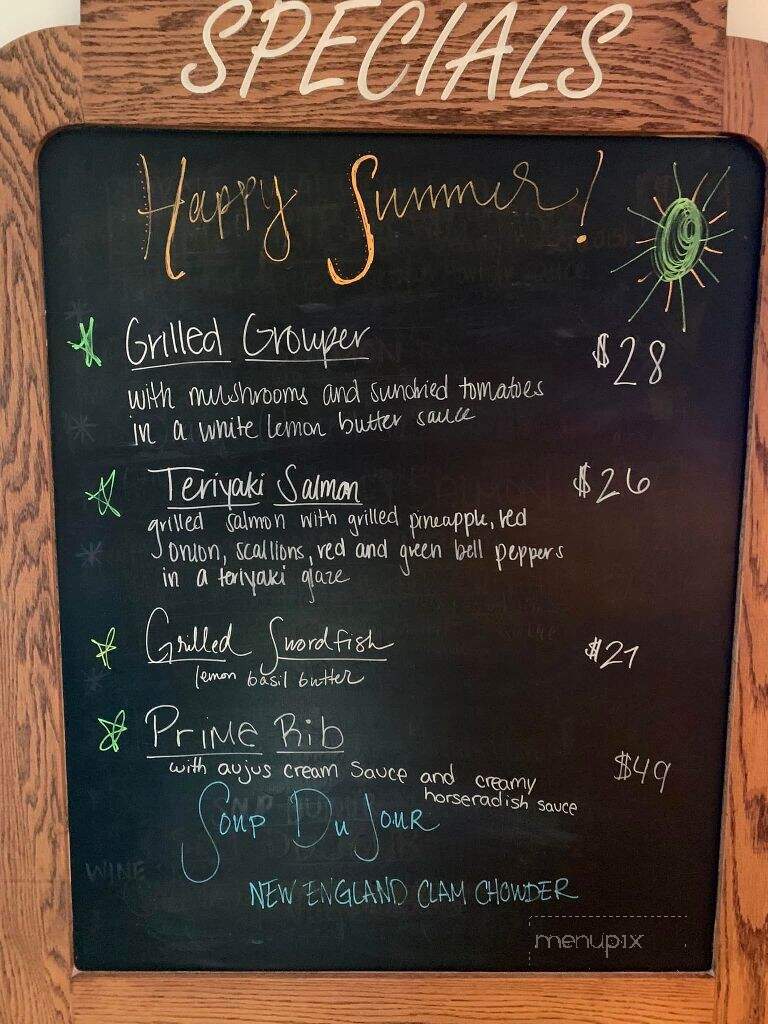 SPECIALS
Happy Summer!
Grilled Grouper $28
with mushrooms and sundried tomatoes
in a white lemon butter sauce
Teriyaki Salmon $26
grilled salmon with grilled pineapple, red
onion, scallions, red and green bell peppers
in a teriyaki glaze
Grilled Swordfish $27
lemon basil butter
Prime Rib $49
with aujus cream sauce and creamy
horseradish sauce
Soup Du Jour
NEW ENGLAND CLAM CHOWDER
WINE
menupix